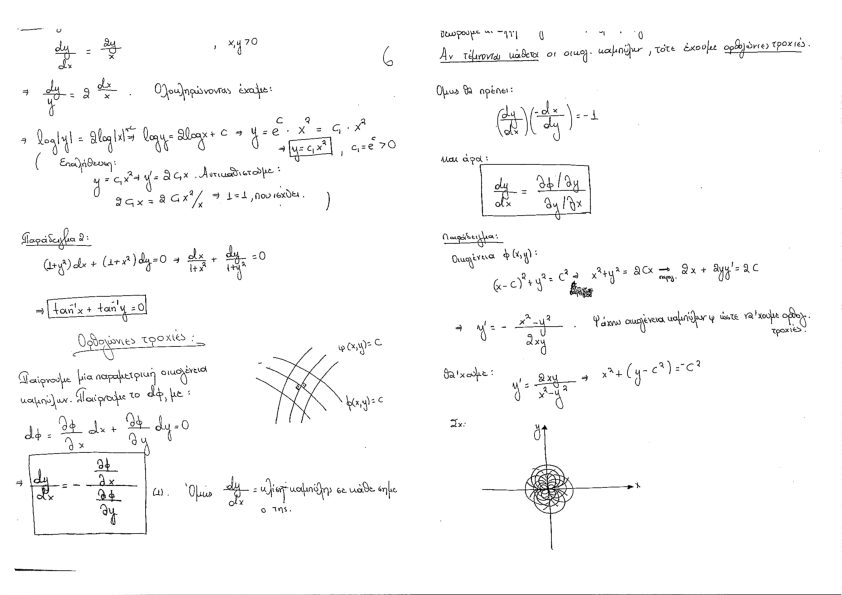 dy/dx = 2y/x , x,y>0
6
→ dy/y = 2 dx/x . Ολοκληρώνοντας έχουμε:
→ log|y| = 2log|x|+c → logy = 2logx + c → y = e^c · x² = c₁ · x²
→ y = c₁x² , c₁ = e^c > 0
( Επαλήθευση:
y = c₁x² → y' = 2c₁x . Αντικαθιστούμε:
2c₁x = 2c₁x²/x → 1=1, που ισχύει. )
Παράδειγμα 2:
(1+y²)dx + (1+x²)dy=0 → dx/1+x² + dy/1+y² = 0
⇒ tan⁻¹x + tan⁻¹y = 0
Ορθογώνιες τροχιές:
Παίρνουμε μία παραμετρική οικογένεια
καμπύλων. Παίρνουμε το dφ, με:
dφ = ∂φ/∂x dx + ∂φ/∂y dy = 0
ψ(x,y) = C
φ(x,y) = C
⇒ dy/dx = - ∂φ/∂x / ∂φ/∂y (1). Όμως dy/dx = κλίση καμπύλης σε κάθε σημε
ο της.
Αν τέμνονται κάθετα οι οικογ. καμπύλων, τότε έχουμε ορθογώνιες τροχιές.
Όμως θα πρέπει:
(dy/dx)(-dx/dy) = -1
και άρα:
dy/dx = ∂φ/∂y / ∂y/∂x
Παράδειγμα:
Οικογένεια φ(x,y):
(x-c)² + y² = c² → x²+y² = 2Cx → παραγ. 2x + 2yy' = 2C
→ y' = - x²-y²/2xy . Ψάχνω οικογένεια καμπύλων ψ ώστε να 'χουμε ορθογ.
τροχιές.
Θα 'χουμε: y' = 2xy/x²-y² → x² + (y-c²) = -c²
Σχ:
y
x